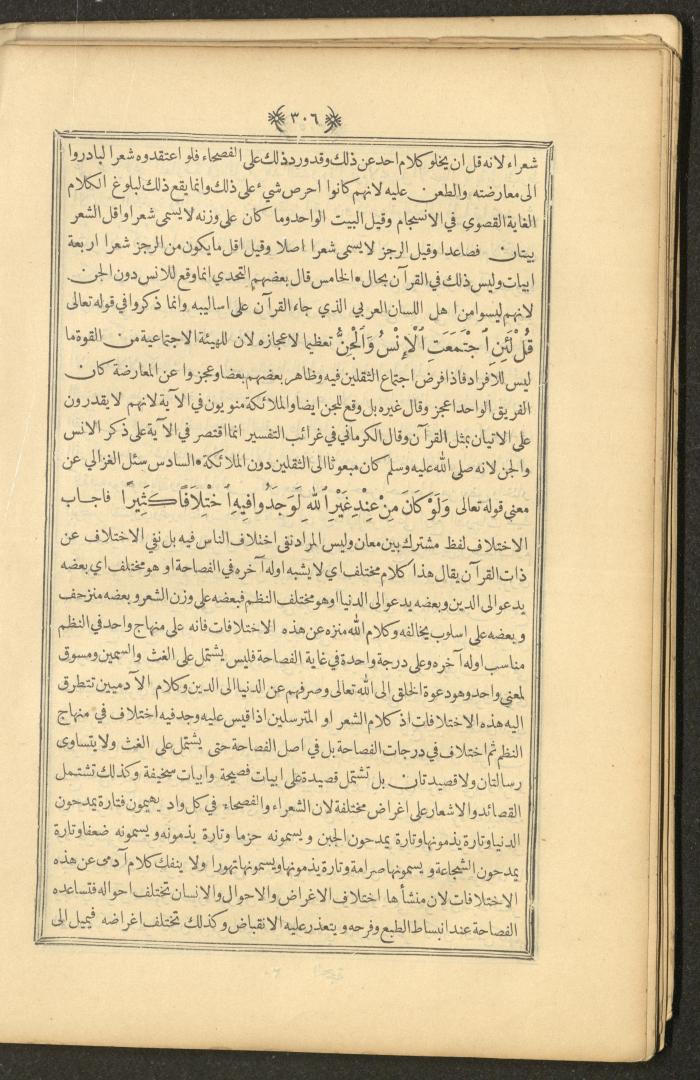 ٣٠٦
شعراء لانه قل ان يخلو كلام احد عن ذلك وقد ورد ذلك على الفصحاء فلو اعتقدوه شعرا لبادروا
الى معارضته والطعن عليه لانهم كانوا احرص شيء على ذلك وانما يقع ذلك لبلوغ الكلام
الغاية القصوي في الانسجام وقيل البيت الواحد وما كان على وزنه لا يسمى شعرا واقل الشعر
بيتان فصاعدا وقيل الرجز لا يسمى شعرا اصلا وقيل اقل ما يكون من الرجز شعرا اربعة
ابيات وليس ذلك في القرآن بحال * الخامس قال بعضهم التحدي انما وقع للانس دون الجن
لانهم ليسوا من اهل اللسان العربي الذي جاء القرآن على اساليبه وانما ذكروا في قوله تعالى
قُلْ لَئِنِ ٱجْتَمَعَتِ ٱلْإِنْسُ وَٱلْجِنُّ تعظيما لاعجازه لان للهيئة الاجتماعية من القوة ما
ليس للافراد فاذا فرض اجتماع الثقلين فيه وظاهر بعضهم بعضا وعجزوا عن المعارضة كان
الفريق الواحد اعجز وقال غيره بل وقع للجن ايضا والملائكة منويون في الآية لانهم لا يقدرون
على الاتيان بمثل القرآن وقال الكرماني في غرائب التفسير انما اقتصر في الآية على ذكر الانس
والجن لانه صلى الله عليه وسلم كان مبعوثا الى الثقلين دون الملائكة * السادس سئل الغزالي عن
معنى قوله تعالى وَلَوْ كَانَ مِنْ عِنْدِ غَيْرِ ٱللهِ لَوَجَدُوا فِيهِ ٱخْتِلَافًا كَثِيرًا فاجاب
الاختلاف لفظ مشترك بين معان وليس المراد نفى اختلاف الناس فيه بل نفي الاختلاف عن
ذات القرآن يقال هذا كلام مختلف اي لا يشبه اوله آخره في الفصاحة او هو مختلف اي بعضه
يدعو الى الدين وبعضه يدعو الى الدنيا او هو مختلف النظم فبعضه على وزن الشعر وبعضه منزحف
وبعضه على اسلوب يخالفه وكلام الله منزه عن هذه الاختلافات فانه على منهاج واحد في النظم
مناسب اوله آخره وعلى درجة واحدة في غاية الفصاحة فليس يشتمل على الغث والسمين ومسوق
لمعنى واحد وهو دعوة الخلق الى الله تعالى وصرفهم عن الدنيا الى الدين وكلام الآدميين تتطرق
اليه هذه الاختلافات اذ كلام الشعر او المترسلين اذا قيس عليه وجد فيه اختلاف في منهاج
النظم ثم اختلاف في درجات الفصاحة بل في اصل الفصاحة حتى يشتمل على الغث ولا يتساوى
رسالتان ولا قصيدتان بل تشتمل قصيدة على ابيات فصيحة وابيات سخيفة وكذلك تشتمل
القصائد والاشعار على اغراض مختلفة لان الشعراء والفصحاء في كل واد يهيمون فتارة يمدحون
الدنيا وتارة يذمونها وتارة يمدحون الجبن ويسمونه حزما وتارة يذمونه ويسمونه ضعفا وتارة
يمدحون الشجاعة ويسمونها صرامة وتارة يذمونها ويسمونها تهورا ولا ينفك كلام آدمى عن هذه
الاختلافات لان منشأها اختلاف الاغراض والاحوال والانسان تختلف احواله فتساعده
الفصاحة عند انبساط الطبع وفرحه ويتعذر عليه الانقباض وكذلك تختلف اغراضه فيميل الى